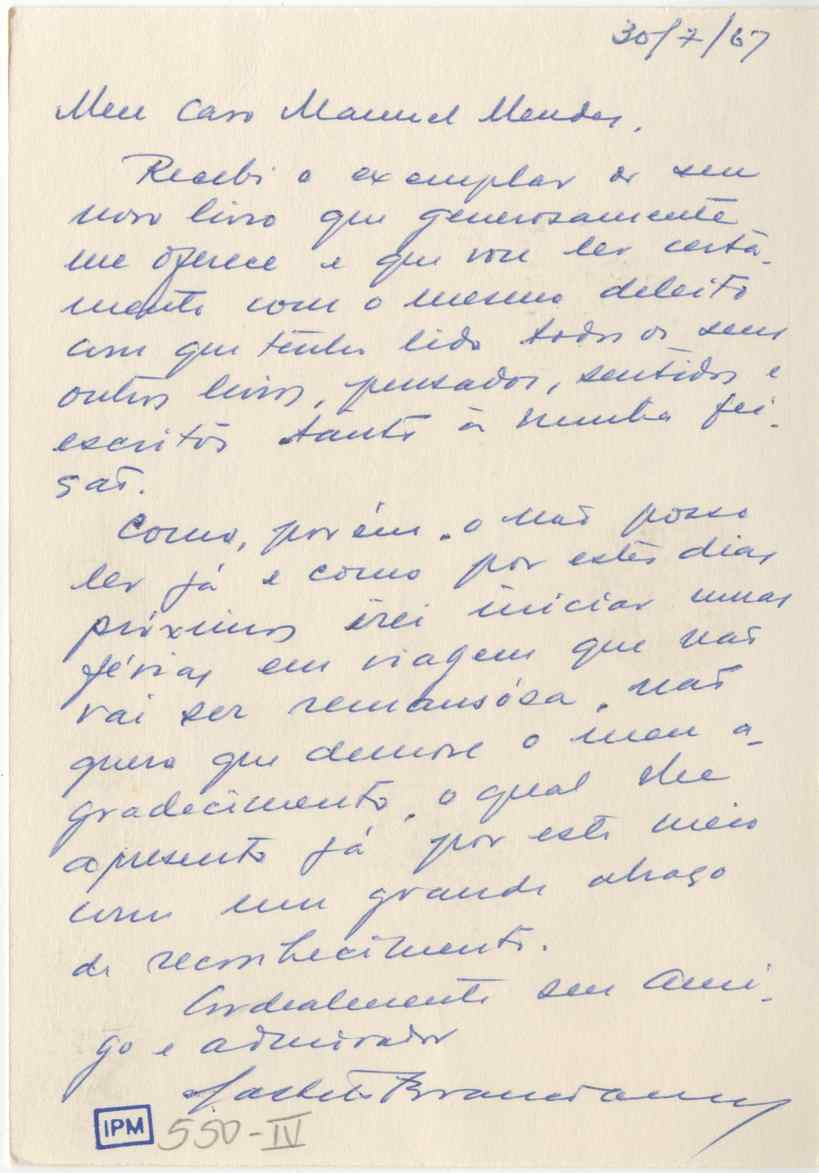 30/7/67
Meu caro Manuel Mendes,
Recebi o exemplar do seu
novo livro que generosamente
me oferece e que vou ler certa-
mente com o mesmo deleito
com que tenho lido todos os seus
outros livros, pensados, sentidos e
escritos tanto à minha fei-
ção.
Como, porém, o não posso
ler já e como por estes dias
próximos irei iniciar umas
férias em viagem que não
vai ser remansósa, não
quero que demore o meu a-
gradecimento, o qual lhe
apresento já por este meio
com um grande abraço
de reconhecimento.
Cordealmente seu Ami-
go e admirador
IPM 550-IV